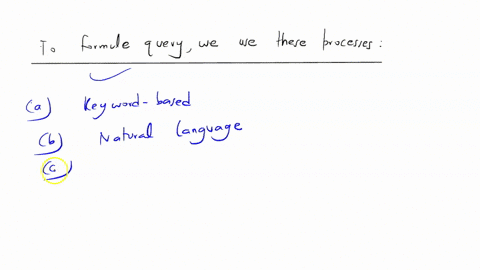 To formule query, we use these processes:
(a) Keyword-based
(b) Natural language
(c)